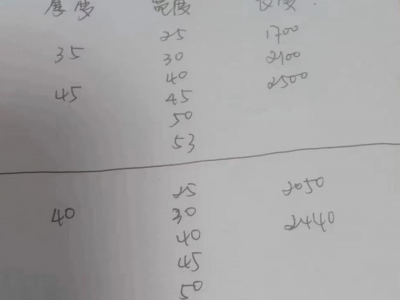 厚度 宽度 长度
25 1700
35 30 2100
40 2500
45 45
50
53
25 2050
40 30 2440
40
45
50